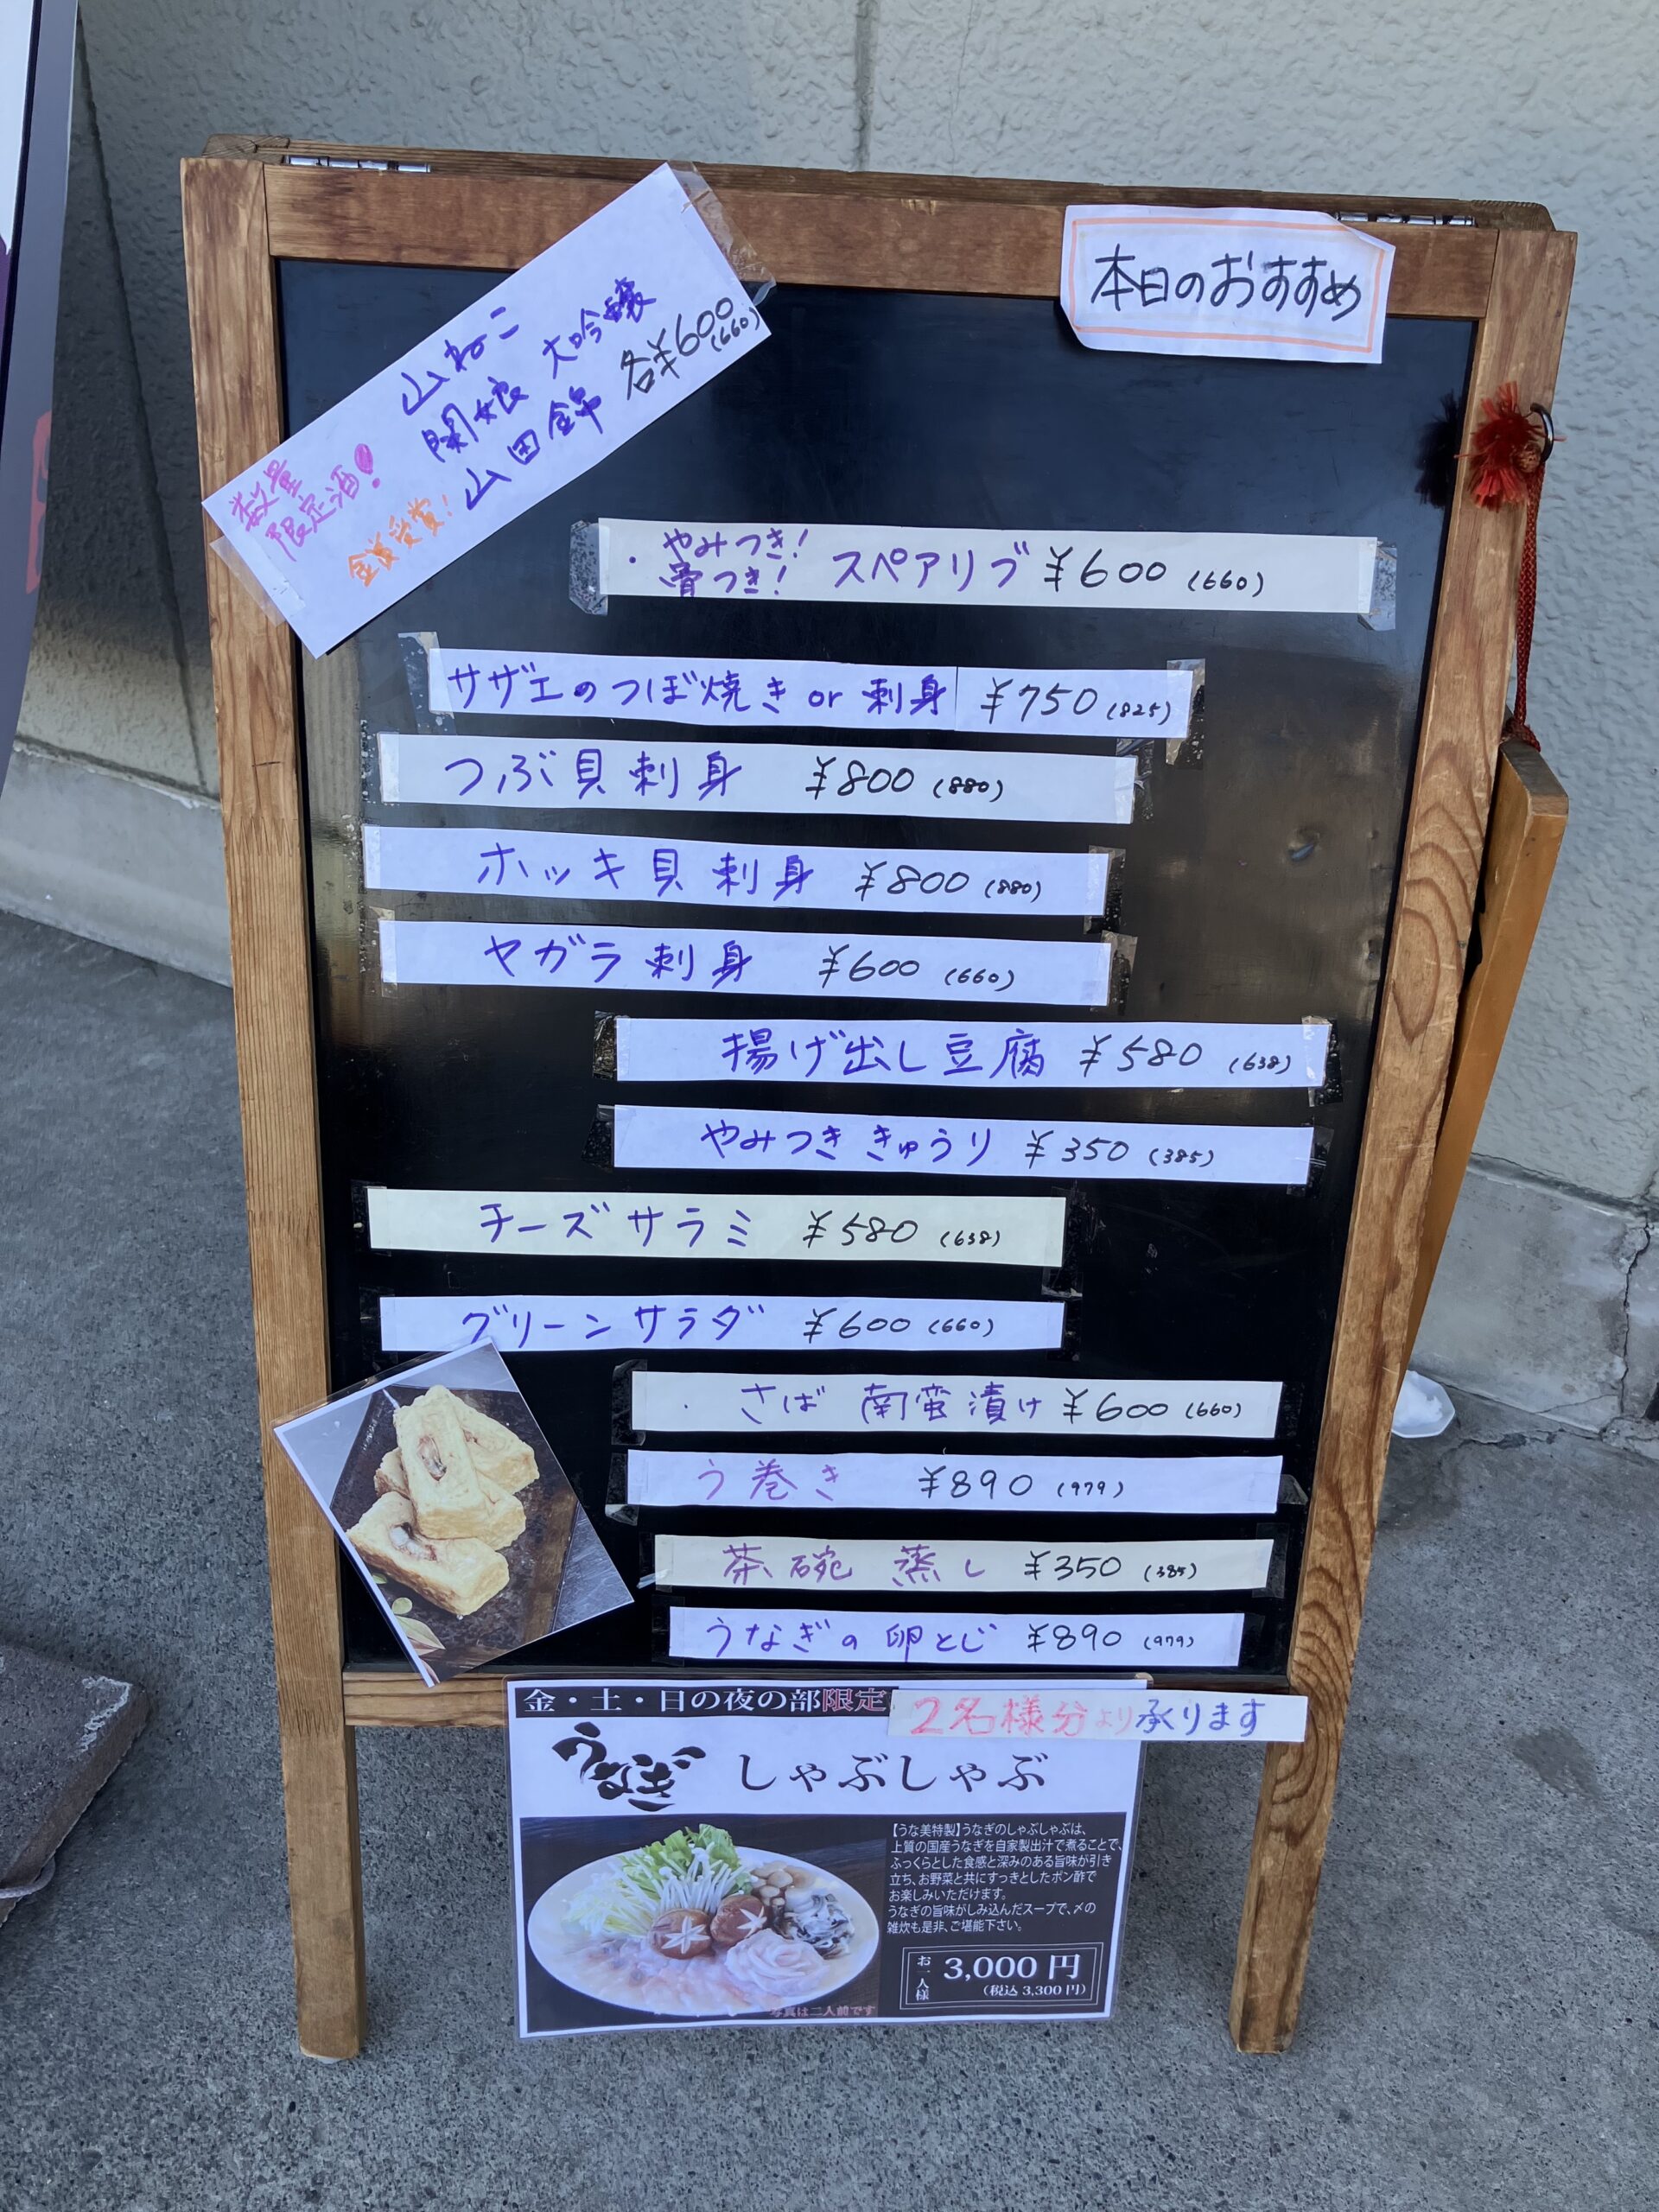 本日のおすすめ
数量
限定酒!
山ねこ
関娘 大吟醸
金賞受賞! 山田錦 各¥600
(660)
・やみつき!
骨つき! スペアリブ ¥600 (660)
サザエのつぼ焼き or 刺身 ¥750 (825)
つぶ貝刺身 ¥800 (880)
ホッキ貝刺身 ¥800 (880)
ヤガラ刺身 ¥600 (660)
揚げ出し豆腐 ¥580 (638)
やみつききゅうり ¥350 (385)
チーズサラミ ¥580 (638)
グリーンサラダ ¥600 (660)
・さば 南蛮漬け ¥600 (660)
う巻き ¥890 (979)
茶碗蒸し ¥350 (385)
うなぎの卵とじ ¥890 (979)
金・土・日の夜の部限定
2名様分より承ります
うなぎ しゃぶしゃぶ
【うな美特製】うなぎのしゃぶしゃぶは、
上質の国産うなぎを自家製出汁で煮ることで、
ふっくらとした食感と深みのある旨味が引き
立ち、お野菜と共にすっきりとしたポン酢で
お楽しみいただけます。
うなぎの旨味がしみ込んだスープで、〆の
雑炊も是非、ご堪能下さい。
お一人様 3,000円
(税込 3,300円)
写真は二人前です